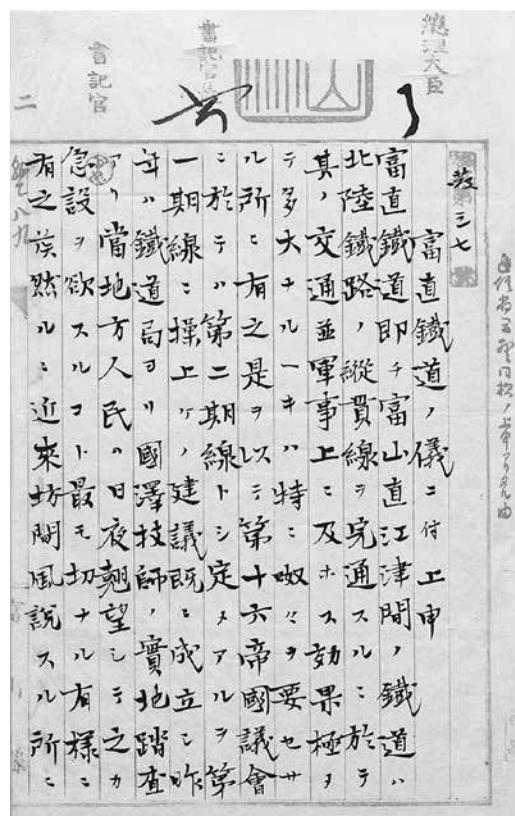 總理大臣
書記官長
書記官
二
發第三七號
富直鐵道ノ儀ニ付上申
富直鐵道即チ富山直江津間ノ鐵道ハ
北陸鐵路ノ縱貫線ヲ完通スルニ於テ
其ノ交通並軍事上ニ及ホス効果極メ
テ多大ナルヿハ特ニ呶々ヲ要セサ
ル所ニ有之是ヲ以テ第十六帝國議會
ニ於テハ第二期線トシ定メアルヲ第
一期線ニ操上ケノ建議既ニ成立シ昨
年ハ鐵道局ヨリ國澤技師ノ實地踏査
アリ當地方人民ハ日夜翹望シテ之カ
急設ヲ欲スルコト最モ切ナル有樣ニ
有之候然ルニ近來坊間風說スル所ニ